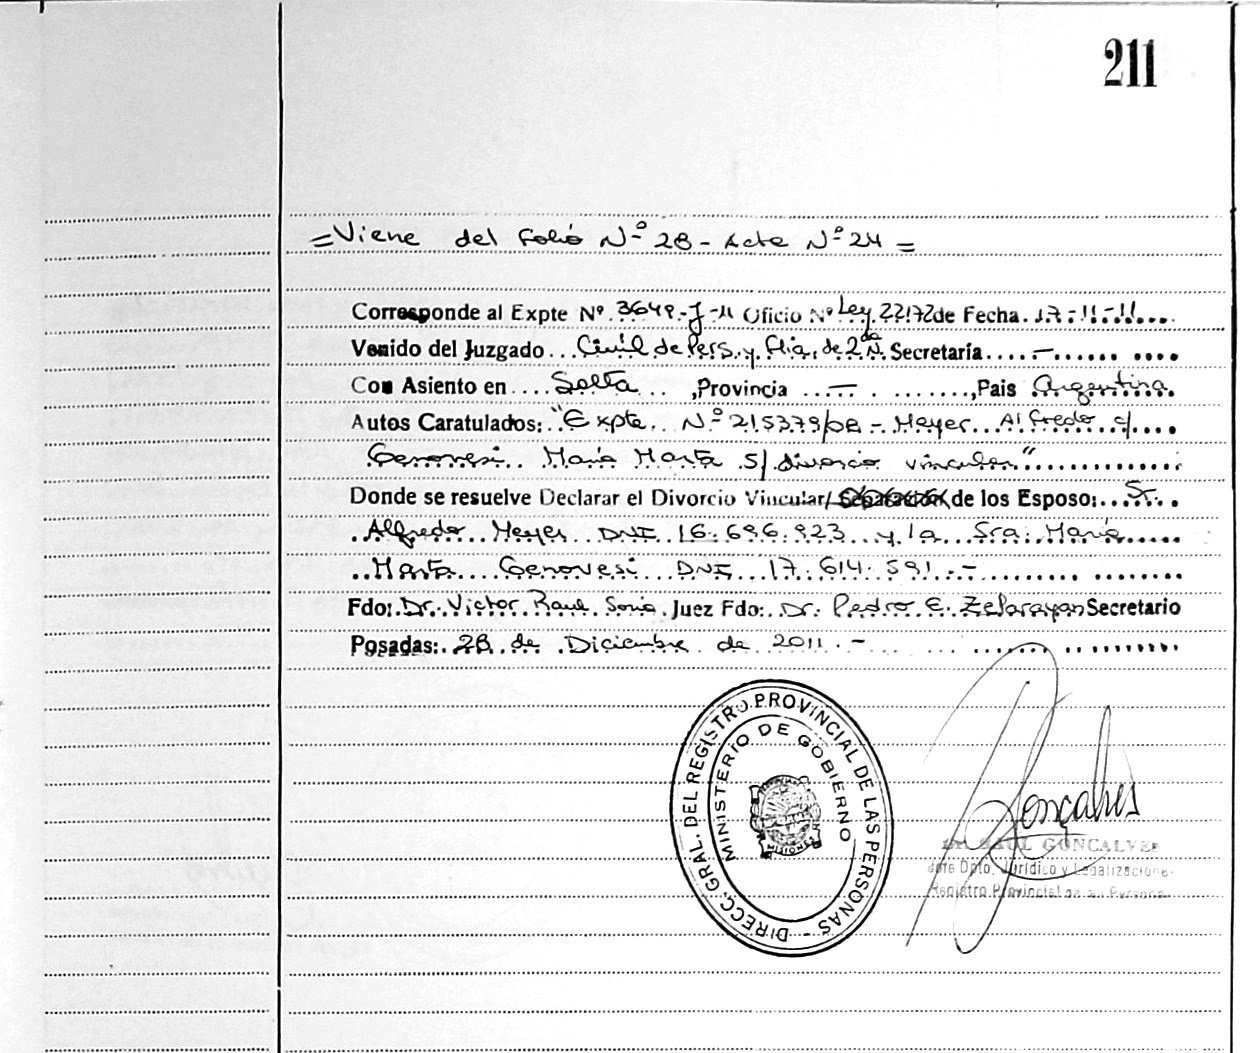 211
=Viene del Folio Nº 28 - Acta Nº 24 =
Corresponde al Expte Nº 3648-J-11 Oficio Nº Ley 22172 de Fecha. 17-11-11....
Venido del Juzgado...Civil de Pers. y Flia. de 2da N. Secretaría....-...... ....
Con Asiento en....Salta... ,Provincia .-- . .......,Pais Argentina
Autos Caratulados: "Expte. Nº 215379/08 - Meyer Alfredo c/....
Genovesi María Marta s/ divorcio vincular"..............
Donde se resuelve Declarar el Divorcio Vincular/ Separación de los Esposo:...Sr...
.Alfredo Meyer DNI 16.696.923 y la Sra. María.....
..Marta....Genovesi DNI 17.614.591.-......... ........
Fdo: Dr. Victor Raul Soria Juez Fdo: Dr. Pedro E. Zelarayan Secretario
Posadas: 28 de Diciembre de 2011.-
DIRECC. GRAL. DEL REGISTRO PROVINCIAL DE LAS PERSONAS -
MINISTERIO DE GOBIERNO
MISIONES
Gonçalves
Dr. RAUL GONCALVES
Jefe Dpto. Jurídico y Legalizaciones
Registro Provincial de las Personas